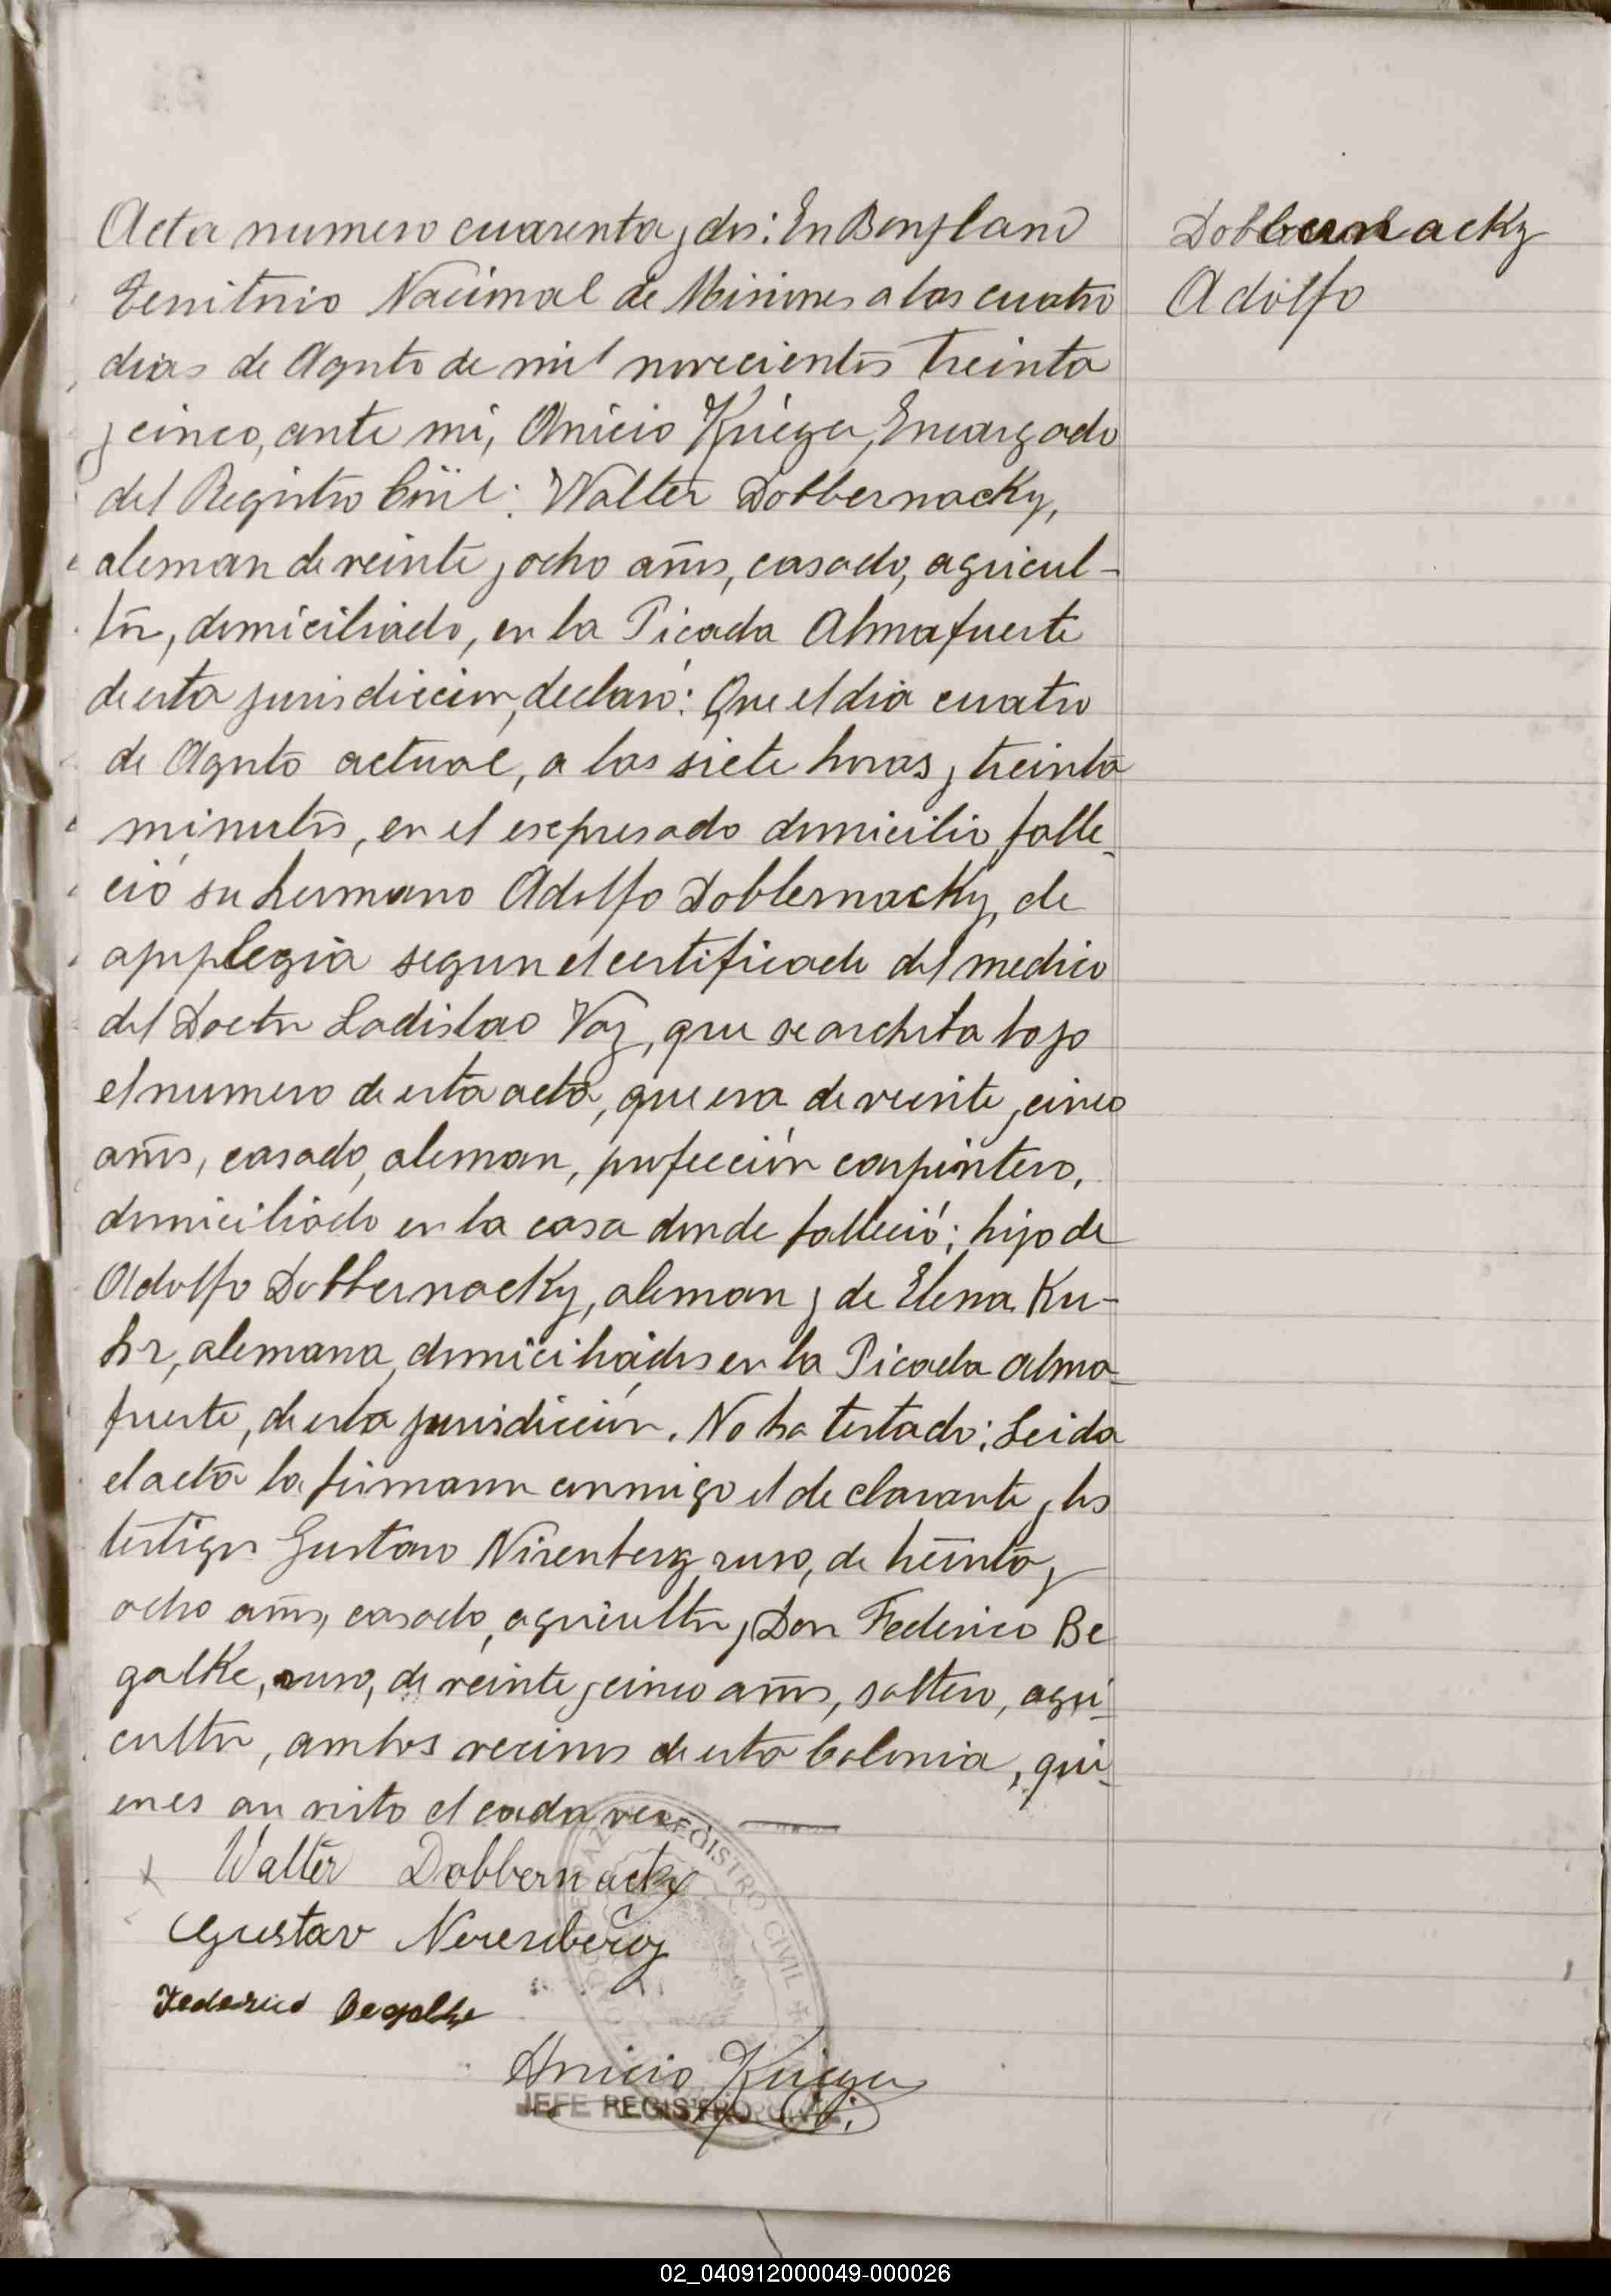 Acta numero cuarenta y dos: En Bonpland
Dobbernacky
Territorio Nacional de Misiones a los cuatro
Adolfo
dias de Agosto de mil novecientos treinta
y cinco, ante mi, Anicio Krieger, Encargado
del Registro Civil: Walter Dobbernacky,
aleman de veinte y ocho años, casado, agricul-
tor, domiciliado, en la Picada Almafuerte
de esta jurisdiccion, declaró: Que el dia cuatro
de Agosto actual, a las siete horas y treinta
minutos, en el expresado domicilio, falle-
ció su hermano Adolfo Dobbernacky, de
apoplegia segun el certificado del medico
del Doctor Ladislao Voz, que se archiva bajo
el numero de esta acta, que era de veinte y cinco
años, casado, aleman, profección carpintero,
domiciliado en la casa donde falleció; hijo de
Adolfo Dobbernacky, aleman y de Elena Ku-
hr, alemana, domiciliados en la Picada Alma-
fuerte, de esta jurisdicción. No ha testado: Leida
el acta la firmaron conmigo el declarante y los
testigos Gustavo Nirenberg, ruso, de treinta y
ocho años, casado, agricultor, y Don Federico Be
galke, ruso, de veinte y cinco años, soltero, agri-
cultor, ambos vecinos de esta Colonia, qui-
enes an visto el cadaver
Walter Dobbernacky
Gustav Nerenberg
Federico Begalke
REGISTRO CIVIL
Anicio Krieger
JEFE REGISTRO CIVIL
02_040912000049-000026